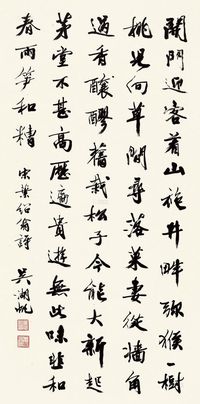 開門迎客著山袍井畔獼猴一樹
桃兒向草間尋落菜妻從牆角
過香醪舊栽松子今能大新起
茅堂不甚高歷遍貴遊無此味韭和
春雨筍和糟
宋葉紹翁詩
吳湖帆